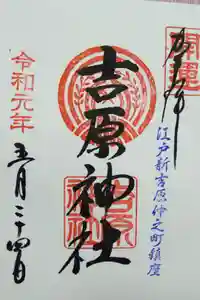 開運
江戸新吉原仲之町鎮座
吉原神社
令和元年
五月二十四日